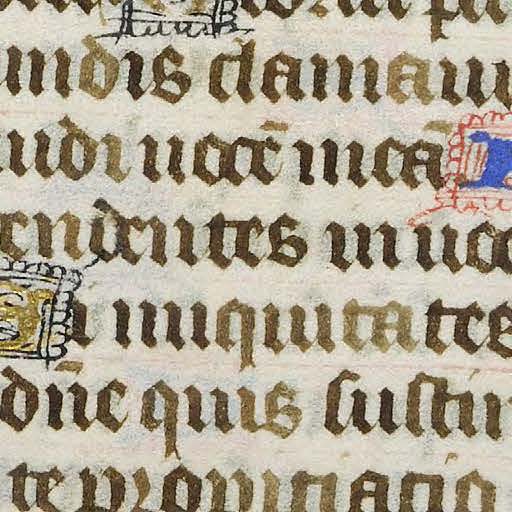 undis clamaui
udi uocē meā
tendentes in uoc
i iniquitates
dñe quis sustin
te propiciacio